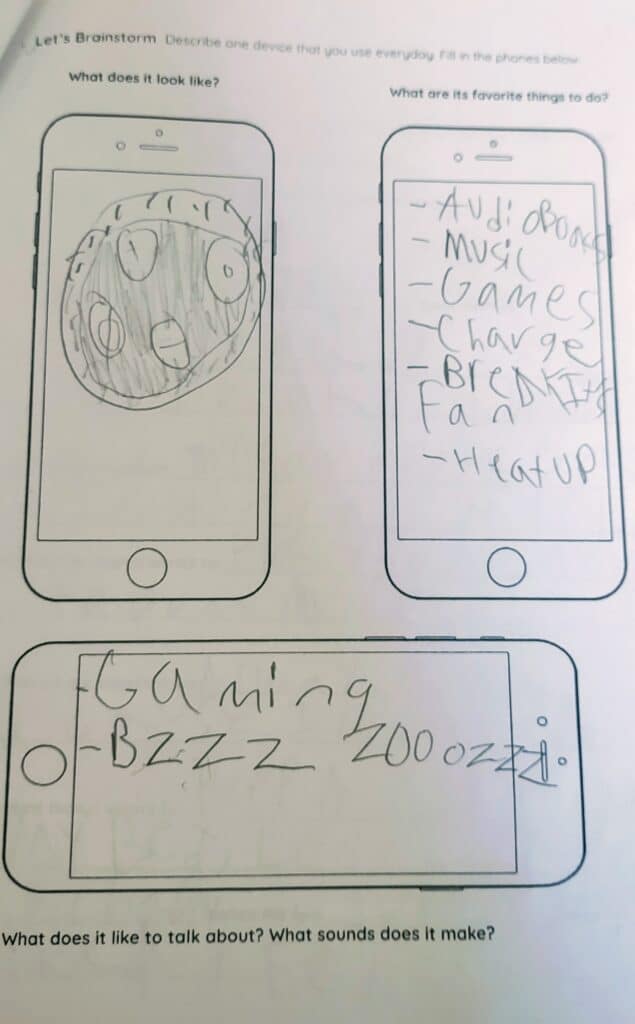 Let's Brainstorm Describe one device that you use everyday. Fill in the phones below
What does it look like?
What are its favorite things to do?
- AUdioBooks
- Music
- Games
- Charge
- BreAKIts
Fan
- Heat UP
- Gaming
- BZZZ ZOOOZZZ
What does it like to talk about? What sounds does it make?